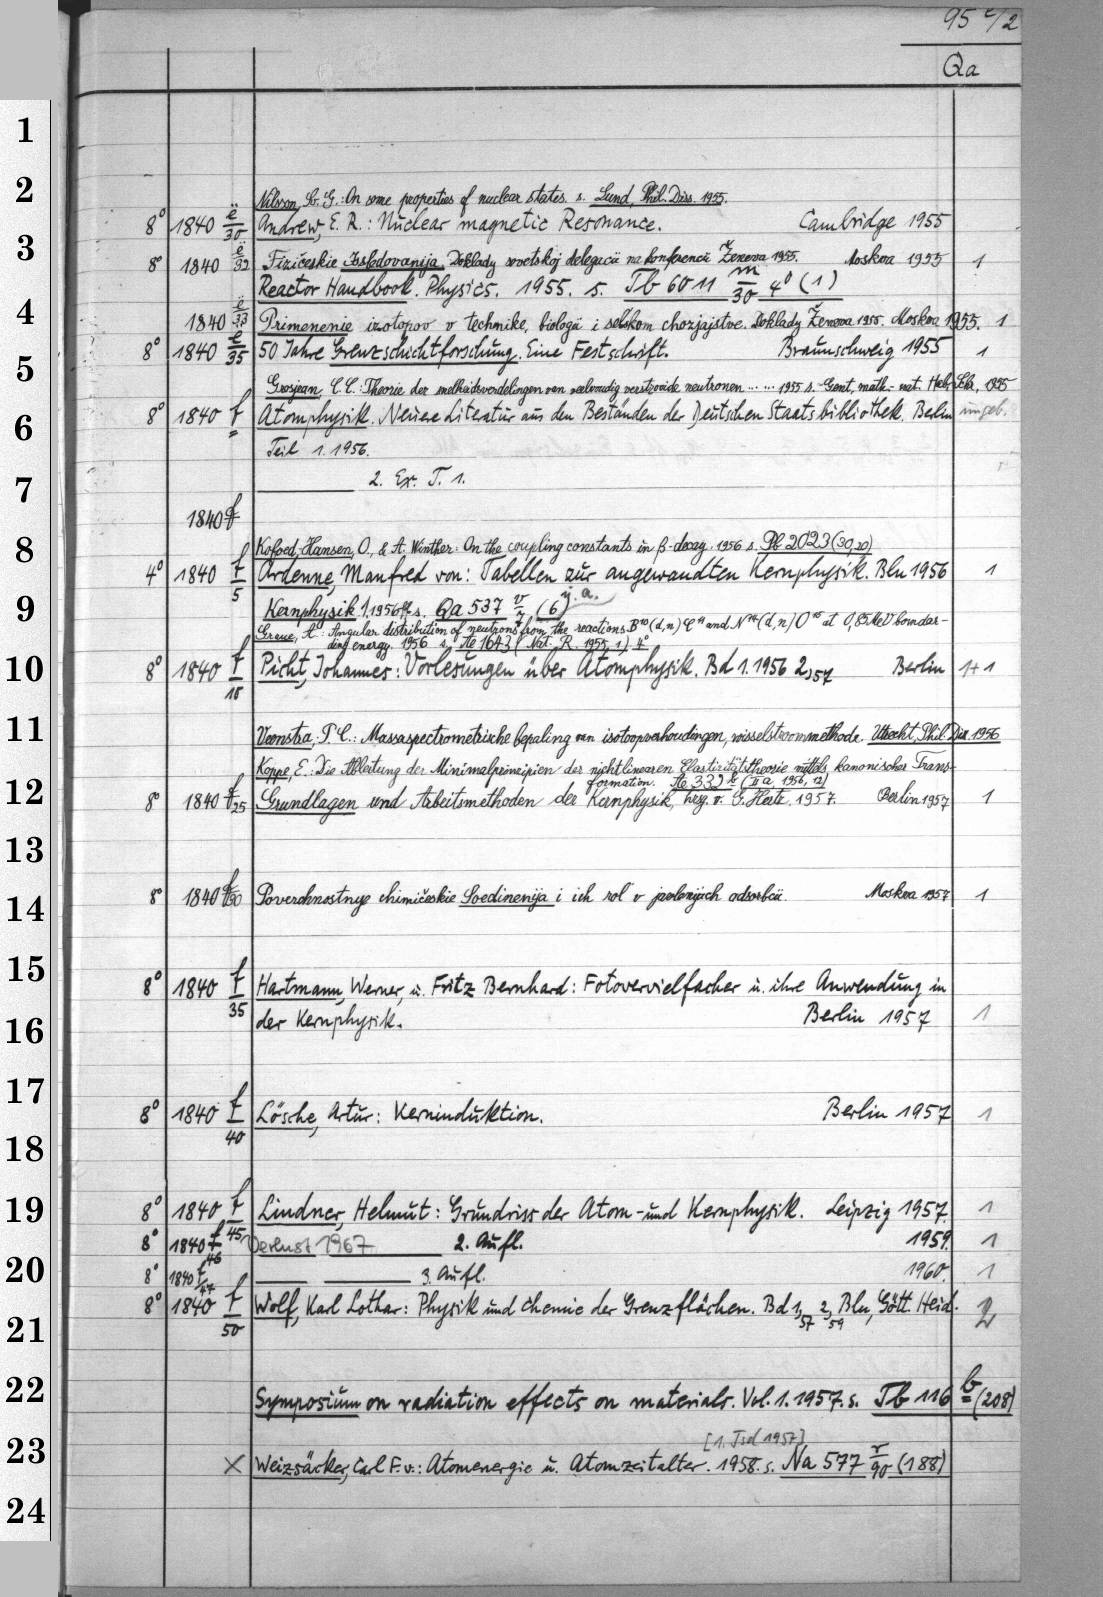 95 c/2
Qa
1
2
Nilsson, S. G.: On some properties of nuclear states. s. Lund, Phil. Diss. 1955.
8° 1840 ë/30 Andrew, E. R.: Nuclear magnetic Resonance. Cambridge 1955
3
8° 1840 ë/32 Fizičeskie Issledovanija. Doklady sovetskoj delegacii na konferencii Ženeva 1955. Moskva 1955 1
Reactor Handbook. Physics. 1955. s. Tb 6011 m/30 4° (1)
4
1840 ë/33 Primenenie izotopov v technike, biologii i selskom chozjajstve. Doklady Ženeva 1955. Moskva 1955. 1
8° 1840 ë/35 50 Jahre Grenzschichtforschung. Eine Festschrift. Braunschweig 1955 1
5
Grosjean, C. C.: Theorie der snelheidsverdelingen van veelvoudig verstrooide neutronen ..... 1955 s. Gent, math.-nat. Hab. Schr. 1955
8° 1840 f Atomphysik. Neuere Literatur aus den Beständen der Deutschen Staatsbibliothek. Berlin ungeb.
6
Teil 1. 1956.
7
2. Ex. T. 1.
1840 f
8
Kofoed-Hansen, O., & A. Winther: On the coupling constants in β-decay. 1956 s. Pb 2023 (30,20)
4° 1840 f/5 Ardenne, Manfred von: Tabellen zur angewandten Kernphysik. Bln 1956 1
9
Kernphysik 1.1956 ff. s. Qa 537 v/7 (6) u. a.
Graue, A.: Angular distribution of neutrons from the reactions B¹⁰(d,n) C¹¹ and N¹⁴(d,n) O¹⁵ at 0,85 MeV bombar-
ding energy. 1956 s. Ae 1643 (Nat. R. 1955, 1) 4°
10
8° 1840 f/15 Picht, Johannes: Vorlesungen über Atomphysik. Bd 1. 1956 2,57 Berlin 1+1
11
Veenstra, P. C.: Massaspectrometrische bepaling van isotoopverhoudingen, wisselstroommethode. Utrecht, Phil. Diss. 1956
Koppe, E.: Die Ableitung der Minimalprincipien der nichtlinearen Elastizitätstheorie mittels kanonischer Trans-
formation. Ae 339 (IIa, 1956, 12)
12
8° 1840 f/25 Grundlagen und Arbeitsmethoden der Kernphysik, hrsg. v. G. Hertz. 1957. Berlin 1957 1
13
14
8° 1840 f/30 Poverchnostnye chimičeskie Soedinenija i ich rol' v javlenijach adsorbcii. Moskva 1957 1
15
8° 1840 f/35 Hartmann, Werner, u. Fritz Bernhard: Fotovervielfacher u. ihre Anwendung in
16
der Kernphysik. Berlin 1957 1
17
8° 1840 f/40 Lösche, Artur: Kerninduktion. Berlin 1957 1
18
19
8° 1840 f/45 Lindner, Helmut: Grundriss der Atom- und Kernphysik. Leipzig 1957. 1
8° 1840 f/46 Verlust 1967 2. Aufl. 1959. 1
20
8° 1840 f/47 3. Aufl. 1960. 1
8° 1840 f/50 Wolf, Karl Lothar: Physik und Chemie der Grenzflächen. Bd 1,57 2,59 Bln, Gött. Heid. 2
21
22
Symposium on radiation effects on materials. Vol. 1. 1957. s. Tb 116 b (208)
23
[1. Tsd 1957]
× Weizsäcker, Carl F. v.: Atomenergie u. Atomzeitalter. 1958. s. Na 577 r/90 (188)
24